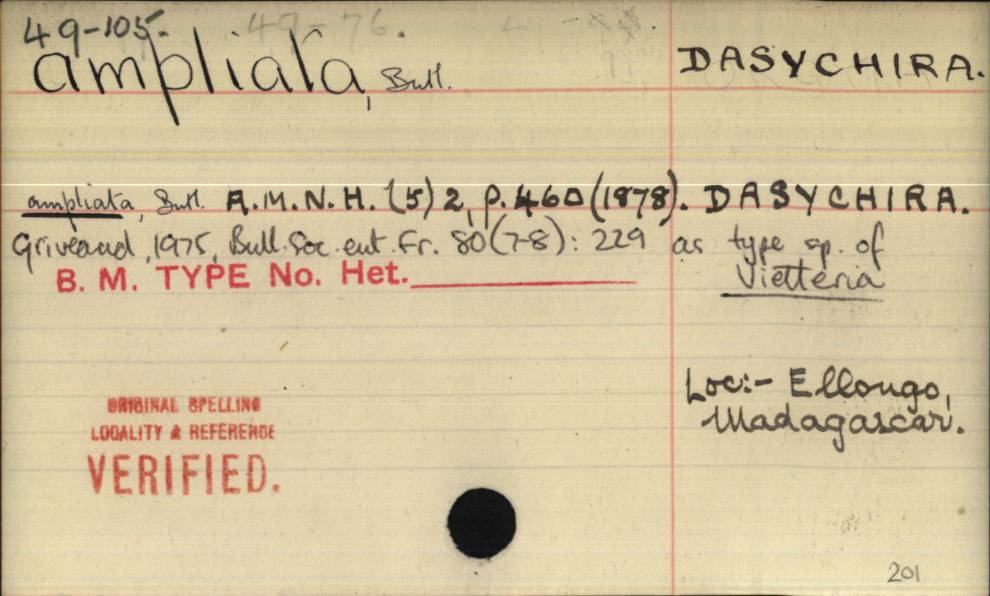 49-105. 49-76.
ampliata, Butl. DASYCHIRA.
ampliata, Butl. A.M.N.H. (5) 2, p.460 (1878). DASYCHIRA.
Griveaud, 1975, Bull. Soc. ent. Fr. 80(7-8): 229 as type sp. of
Vietteria
B. M. TYPE No. Het.
Loc:- Ellongo,
Madagascar.
ORIGINAL SPELLING
LOCALITY & REFERENCE
VERIFIED.
201